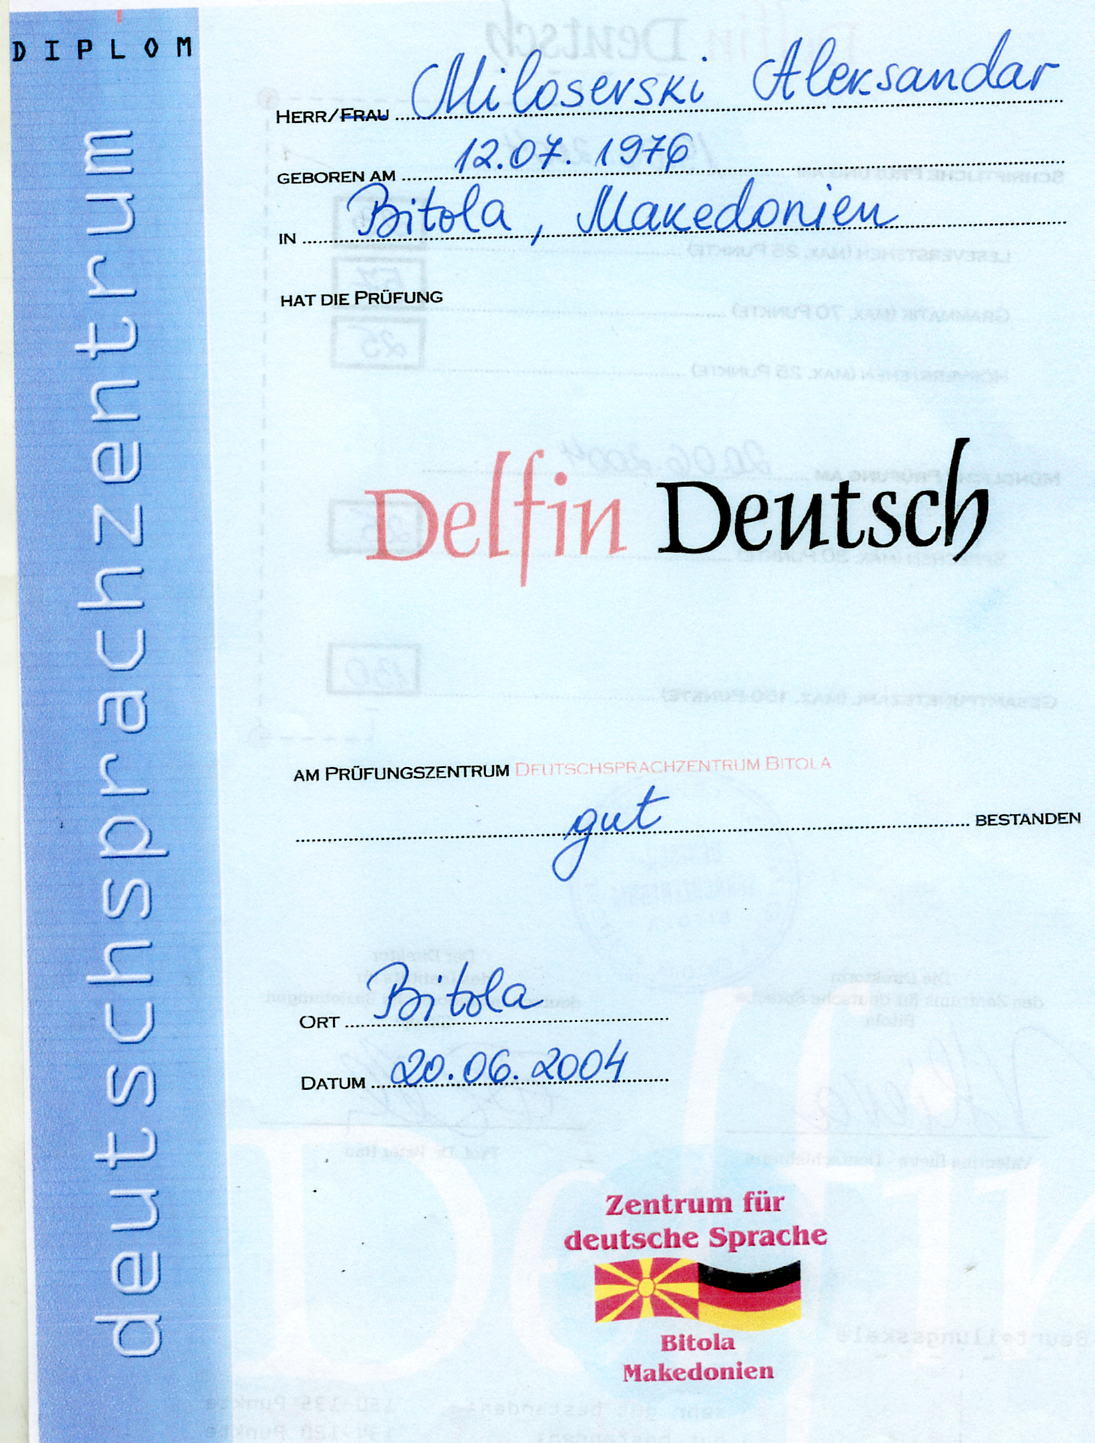 DIPLOM
deutschsprachzentrum
HERR/FRAU Miloserski Aleksandar
GEBOREN AM 12.07.1976
IN Bitola, Makedonien
HAT DIE PRÜFUNG
Delfin Deutsch
AM PRÜFUNGSZENTRUM DEUTSCHSPRACHZENTRUM BITOLA
gut BESTANDEN
ORT Bitola
DATUM 20.06.2004
Zentrum für
deutsche Sprache
Bitola
Makedonien
Delfin